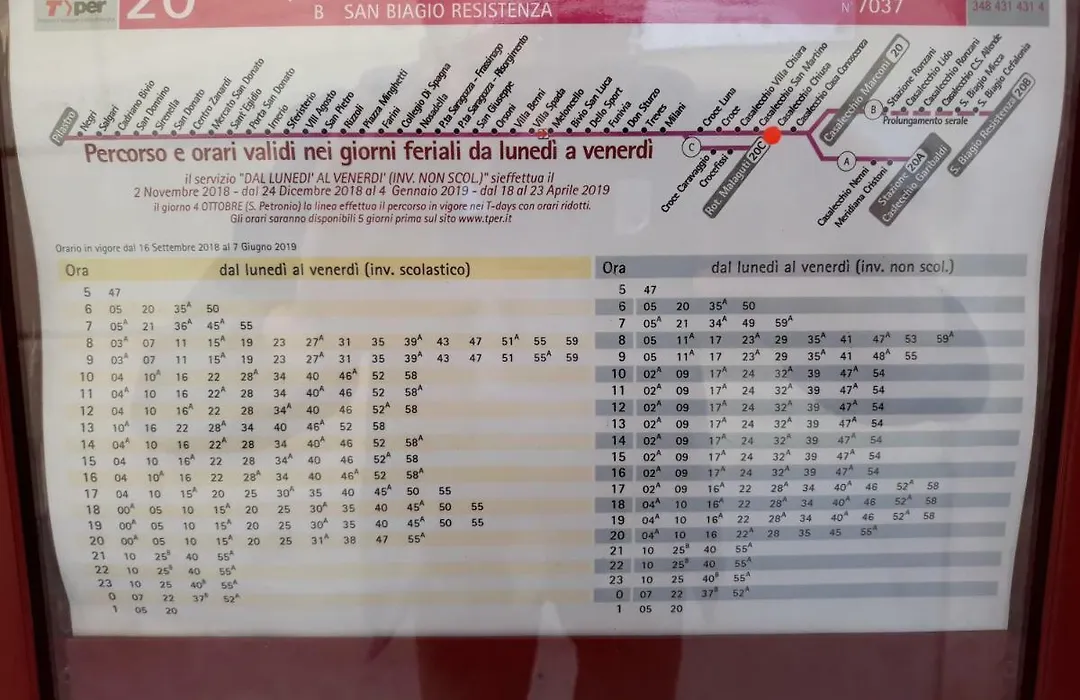 T per
20
B SAN BIAGIO RESISTENZA
N° 7037
348 431 431 4
Pilastro
Negri
Salgari
Cadriano Bivio
San Donnino
Sirenella
San Donato
Centro Zanardi
Mercato San Donato
Sant'Egidio
Porta San Donato
Irnerio
Sferisterio
VIII Agosto
San Pietro
Rizzoli
Piazza Minghetti
Farini
Collegio Di Spagna
Nosadella
P.ta Saragozza - Frassinago
P.ta Saragozza - Risorgimento
San Giuseppe
Orsoni
Villa Benni
Villa Spada
Meloncello
Bivio San Luca
Dello Sport
Funivia
Don Sturzo
Treves
Milani
Croce Luna
Croce
Casalecchio Villa Chiara
Casalecchio San Martino
Casalecchio Chiusa
Casalecchio Casa Conoscenza
Casalecchio Marconi 20
B
Stazione Ronzani
Casalecchio Lido
Casalecchio Ronzani
Casalecchio C.S. Allende
S. Biagio Micca
S. Biagio Cefalonia
S. Biagio Resistenza 20B
Prolungamento serale
C
Croce Caravaggio
Crocefissi
Rot. Malaguti 20C
A
Casalecchio Nenni
Meridiana Cristoni
Stazione 20A
Caslecchio Garibaldi
Percorso e orari validi nei giorni feriali da lunedì a venerdì
il servizio "DAL LUNEDI' AL VENERDI' (INV. NON SCOL.)" sieffettua il
2 Novembre 2018 - dal 24 Dicembre 2018 al 4 Gennaio 2019 - dal 18 al 23 Aprile 2019
il giorno 4 OTTOBRE (S. Petronio) la linea effettua il percorso in vigore nei T-days con orari ridotti.
Gli orari saranno disponibili 5 giorni prima sul sito www.tper.it
Orario in vigore dal 16 Settembre 2018 al 7 Giugno 2019
Ora dal lunedì al venerdì (inv. scolastico)
5 47
6 05 20 35A 50
7 05A 21 36A 45A 55
8 03A 07 11 15A 19 23 27A 31 35 39A 43 47 51A 55 59
9 03A 07 11 15A 19 23 27A 31 35 39A 43 47 51 55A 59
10 04 10A 16 22 28A 34 40 46A 52 58
11 04A 10 16 22A 28 34 40A 46 52 58A
12 04 10 16A 22 28 34A 40 46 52A 58
13 10A 16 22 28A 34 40 46A 52 58
14 04A 10 16 22A 28 34 40A 46 52 58A
15 04 10 16A 22 28 34A 40 46 52A 58
16 04 10A 16 22 28A 34 40 46A 52 58A
17 04 10 15A 20 25 30A 35 40 45A 50 55
18 00A 05 10 15A 20 25 30A 35 40 45A 50 55
19 00A 05 10 15A 20 25 30A 35 40 45A 50 55
20 00A 05 10 15A 20 25 31A 38 47 55A
21 10 25B 40 55A
22 10 25B 40 55A
23 10 25 40B 55A
0 07 22 37B 52A
1 05 20
Ora dal lunedì al venerdì (inv. non scol.)
5 47
6 05 20 35A 50
7 05A 21 34A 49 59A
8 05 11A 17 23A 29 35A 41 47A 53 59A
9 05 11A 17 23A 29 35A 41 48A 55
10 02A 09 17A 24 32A 39 47A 54
11 02A 09 17A 24 32A 39 47A 54
12 02A 09 17A 24 32A 39 47A 54
13 02A 09 17A 24 32A 39 47A 54
14 02A 09 17A 24 32A 39 47A 54
15 02A 09 17A 24 32A 39 47A 54
16 02A 09 17A 24 32A 39 47A 54
17 02A 09 16A 22 28A 34 40A 46 52A 58
18 04A 10 16A 22 28A 34 40A 46 52A 58
19 04A 10 16A 22 28A 34 40A 46 52A 58
20 04A 10 16 22A 28 35 45 55A
21 10 25B 40 55A
22 10 25B 40 55A
23 10 25 40B 55A
0 07 22 37B 52A
1 05 20